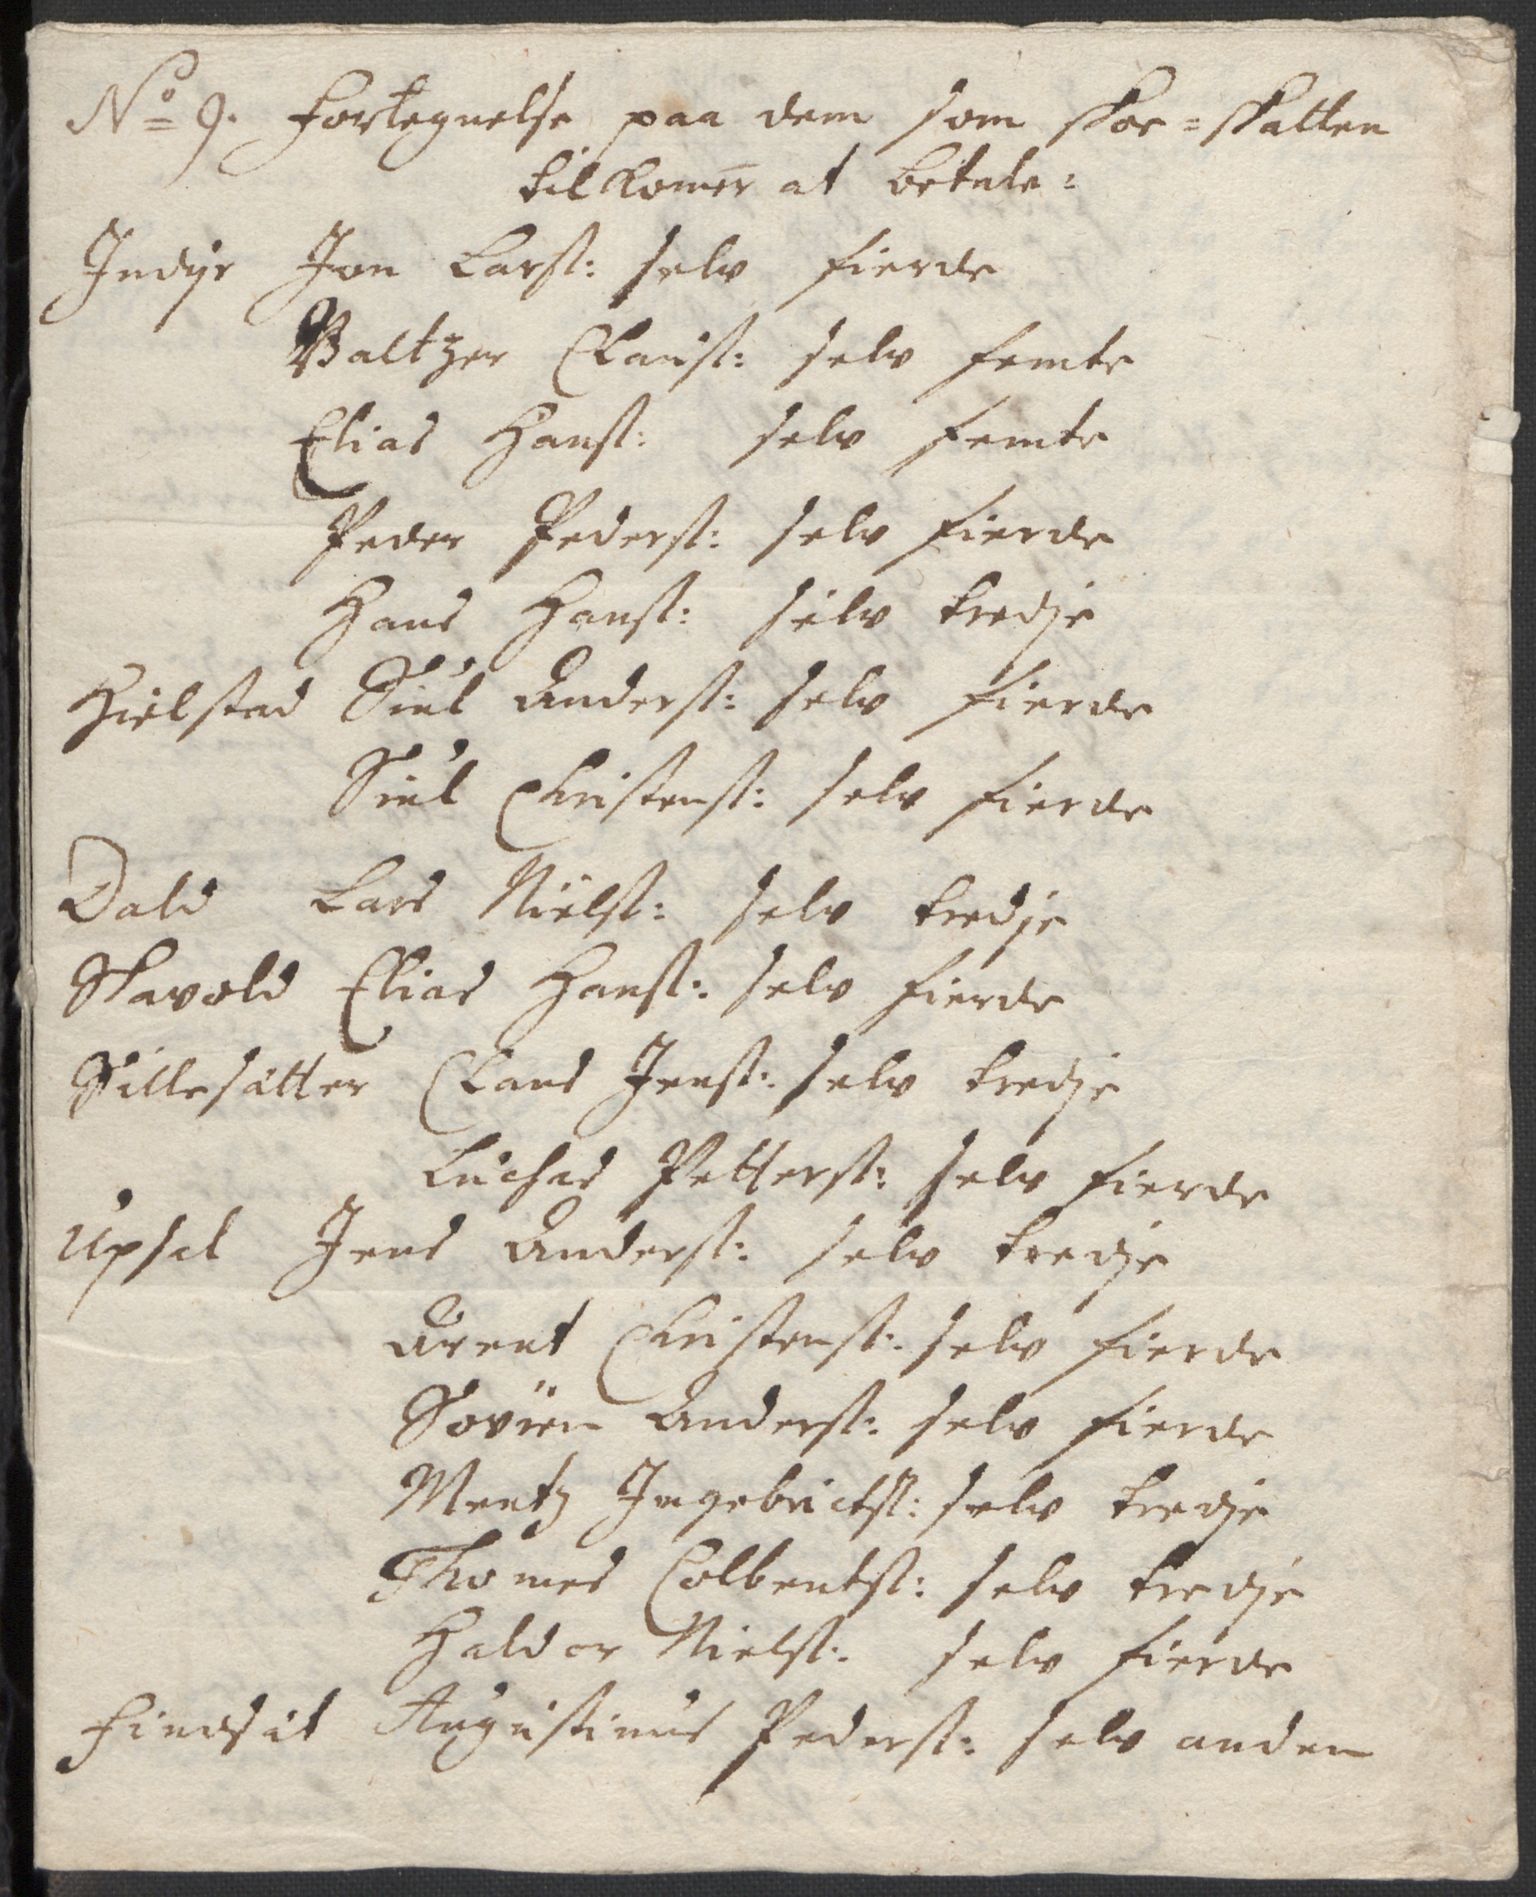 No 9. Fortegnelse paa dem som Skoe=Skatten
tilkomer at betale:
Indyr Jon Larss: selv fierde
Baltzer Clauss: selv femte
Elias Hanss: selv femte
Peder Pederss: selv fierde
Hans Hanss: selv tredje
Hielstad Siul Anderss: selv fierde
Siul Christenss: selv fierde
Dals Lars Nielss: selv tredje
Skavold Elias Hanss: selv fierde
Sillesätter Claus Jenss: selv tredje
Luchas Petterss: selv fierde
Upsal Jens Anderss: selv tredje
Arent Christenss: selv fierde
Sovren Anderss: selv fierde
Mentz Ingebrictss: selv tredje
Thomes Colbentss: selv tredje
Haldor Nielss: selv fierde
Findsät Augustinus Pederss: selv anden